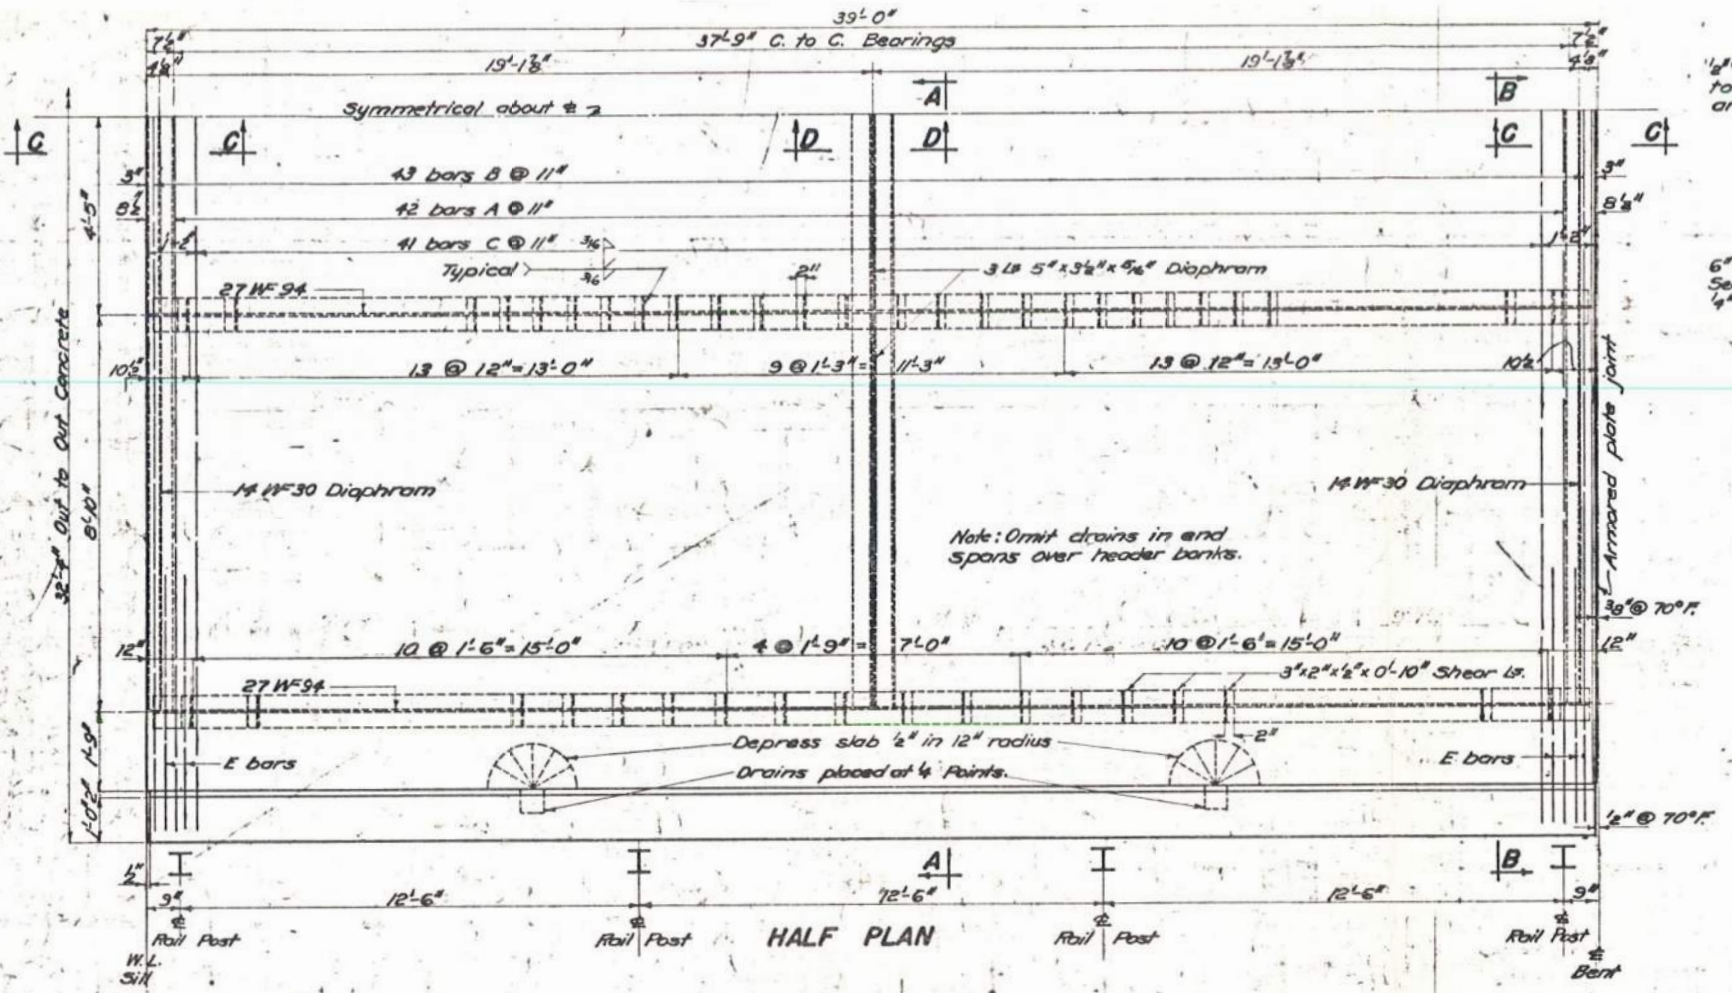 39'-0"
7½" 37'-9" C. to C. Bearings 7½"
4⅛" 19'-1⅞" 19'-1⅞" 4⅛"
A B
Symmetrical about ℄
C C D D C C
3" 43 bars B @ 11" 3"
8½" 42 bars A @ 11" 8½"
1'-2" 41 bars C @ 11" 3/16 1'-2"
Typical 3/16 2" 3 Ls 5" x 3½" x 5/16" Diaphram
27 WF 94
4'-5"
10½" 13 @ 12" = 13'-0" 9 @ 1'-3" = 11'-3" 13 @ 12" = 13'-0" 10½"
32'-4" Out to Out Concrete
8'-10"
14 WF 30 Diaphram 14 WF 30 Diaphram
Armored plate joint
Note: Omit drains in end
spans over header banks.
⅜" @ 70° F.
12" 10 @ 1'-6" = 15'-0" 4 @ 1'-9" = 7'-0" 10 @ 1'-6" = 15'-0" 12"
27 WF 94 3" x 2" x ½" x 0'-10" Shear Ls.
1'-9" Depress slab ½" in 12" radius 2"
E bars Drains placed at 4 Points. E bars
1'-0½"
½" @ 70° F.
½" A B
9" 12'-6" 12'-6" 12'-6" 9"
℄ ℄ ℄
Rail Post Rail Post HALF PLAN Rail Post Rail Post
W.L. ℄
Sill Bent
½"
to
6"
¼"